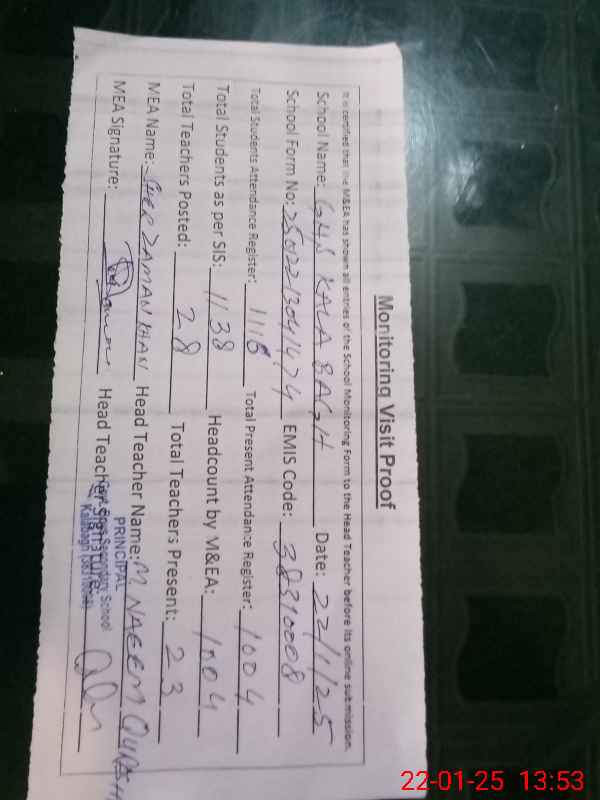 Monitoring Visit Proof
It is certified that the M&EA has shown all entries of the School Monitoring Form to the Head Teacher before its online submission.
School Name: GHS KALA BAGH Date: 22/1/25
School Form No: EMIS Code: 38310008
Total Students Attendance Register: 1116 Total Present Attendance Register: 1004
Total Students as per SIS: 1138 Headcount by M&EA: 1004
Total Teachers Posted: 28 Total Teachers Present: 23
MEA Name: SHER ZAMAN KHAN Head Teacher Name: M. NAEEM QURESHI
MEA Signature: Head Teacher Signature:
PRINCIPAL
Secondary School
Kalabagh
22-01-25 13:53